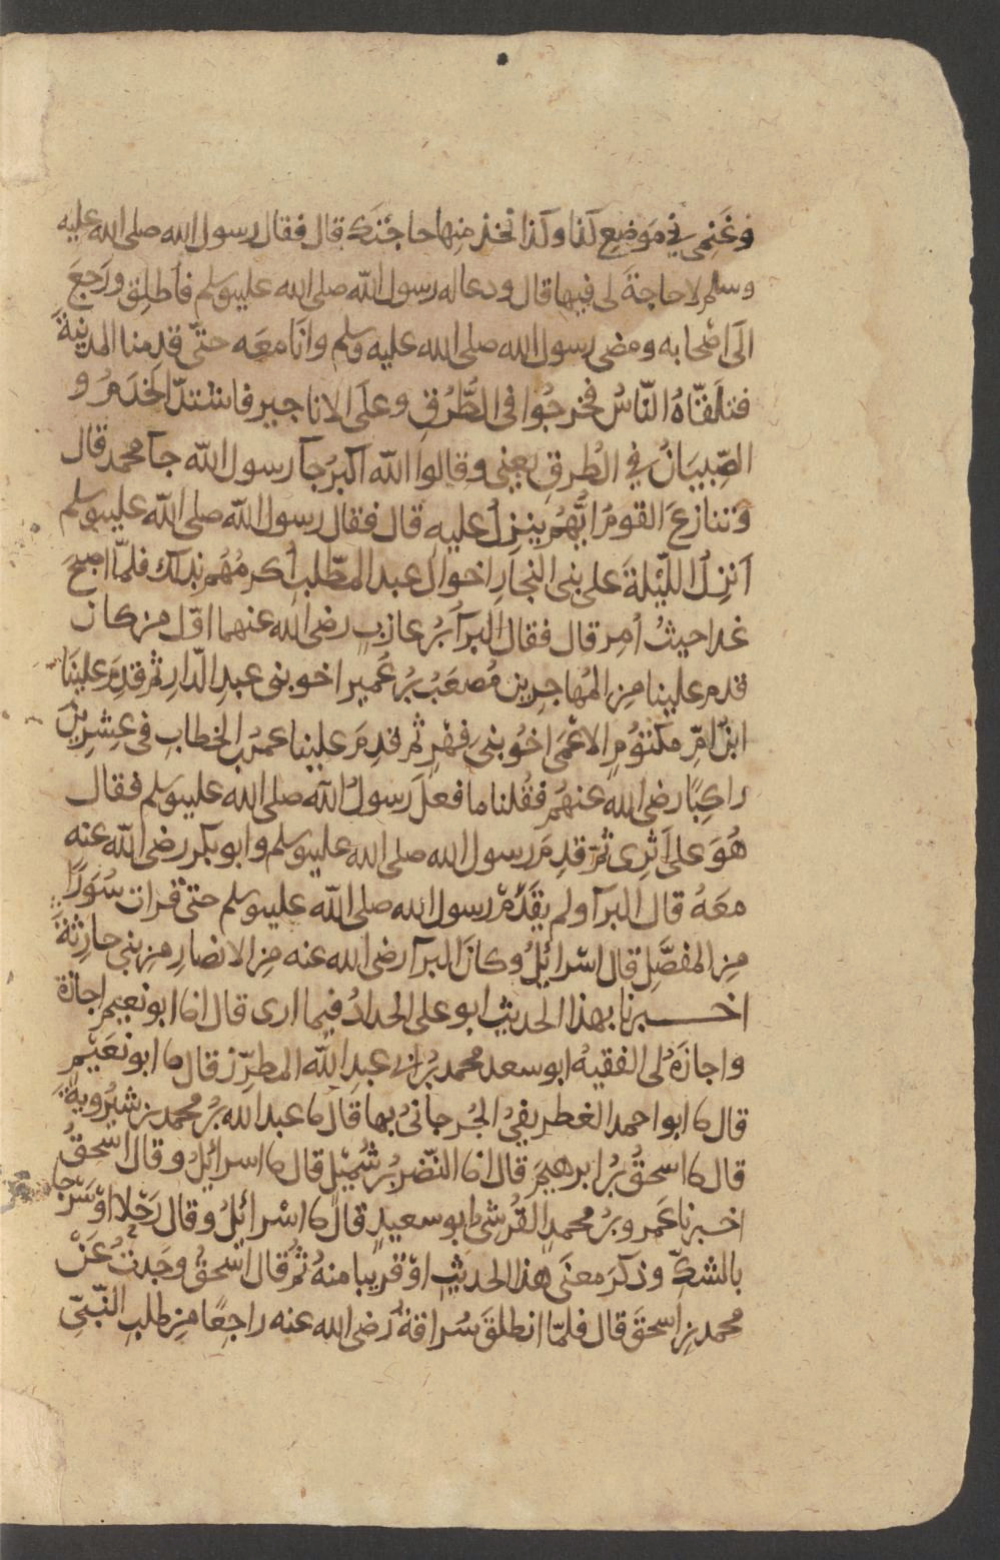 وغَنَمِي في مَوضِعِ كَذا وكَذا فخذ مِنها حاجَتَكَ قال فقال رسول الله صلى الله عليه
وسلم لا حاجةَ لى فيها قال ودعا له رسول الله صلى الله عليه وسلم فأُطلِقَ ورَجَعَ
الَى اصْحابه ومضى رسول الله صلى الله عليه وسلم وانَا معَه حتّى قدمنا المدينَةَ
فتلَقّاهُ النّاسُ فخرجُوا فى الطُّرُقِ وعلَى الاناجير فاشتدّ الخدَمُ و
الصِّبيَانُ في الطُرقِ يعنى وقالوا الله اكبرُ جآ رسول الله جآ محمد قال
وتنازعَ القومُ ايُّهُم ينزِلُ عليه قال فقال رسول الله صلى الله عليه وسلم
اَنزِلُ اللّيلةَ على بنى النجارِ اخوالِ عبد المطّلبِ اُكرمُهُم بذلك فلمّا اصبحَ
غدا حيثُ اُمِر قال فقال البرآءُ بنُ عازبٍ رضى الله عنهما اوّل من كان
قدم علينا مِن المُهاجرِين مُصعَبُ بنُ عُميرٍ اخو بنى عبدِ الدّارِ ثمّ قدِمَ علينَا
ابنُ امِّ مكتُومٍ الاعْمَى اخُو بنى فِهْرٍ ثم قدِمَ علينا عمرُ بن الخطابِ فى عِشرِينَ
راكِبًا رضى الله عنهُم فقُلنا ما فعلَ رسولُ الله صلى الله عليه وسلم فقال
هُوَ على اَثَرِى ثمّ قدِمَ رسول الله صلى الله عليه وسلم وابو بكر رضى الله عنه
معَهُ قال البرآ ولم يقدَمْ رسول الله صلى الله عليه وسلم حتى قرات سُورًا
مِن المفصَّلِ قال اسْرائيلُ وكانَ البرآ رضى الله عنه مِن الانصارِ مِن بنى حارِثةَ
اخـــبرنا بهذا الحديث ابو على الحدادُ فيما ارى قال انا ابو نعيم اجازة
واجازَهُ لى الفقيهُ ابو سعد محمد بنُ عبدِ الله المطرّز قال نا ابو نعَيْم
قال نا ابو احمد الغطريفىُّ الجُرجانىُّ بها قال نا عبد الله بنُ محمد بن شيرُويةَ
قال نا اسحقُ بنُ ابرهيمَ قال انا النّضرُ بنُ شُمَيْلٍ قال نا اسرائيلُ وقال اسحقُ
اخبرنا عَمرو بنُ محمدٍ القُرشى ابو سعيدٍ قال نا اسْرائيلُ وقال رَحْلًا اوْ سَرْجًا
بالشكِّ وذكَرَ معنَى هذا الحديثِ اوْ قريبا منهُ ثمّ قال اسْحقُ وجَدتُ عَنْ
محمد بنِ اسحقَ قال فلمّا انطلقَ سُراقةُ رضى الله عنه راجِعًا مِن طلبِ النّبيّ